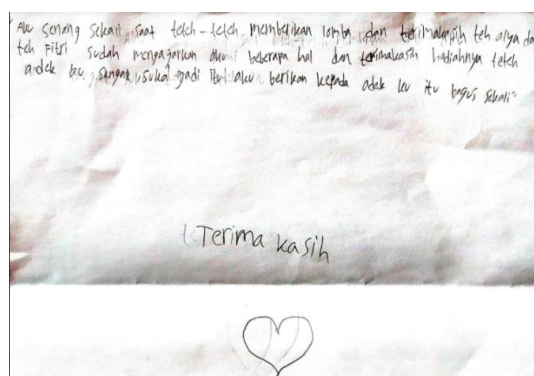 Aku senang sekali saat teteh-teteh memberikan lomba dan terimakasih teh alya da
teh Fitri sudah mengajarkan akui beberapa hal dan terimakasih hadiahnya teteh
adek ku sangat suka jadi itu aku berikan kepada adek ku itu bagus sekali
Terima kasih